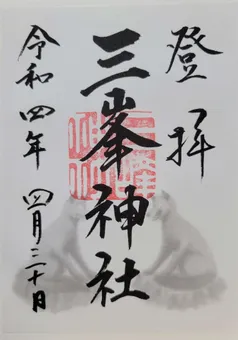 登拝
三峯神社
令和四年 四月三十日